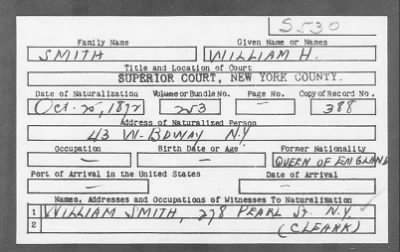 S530
Family Name Given Name or Names
SMITH WILLIAM H.
Title and Location of Court
SUPERIOR COURT, NEW YORK COUNTY.
Date of Naturalization Volume or Bundle No. Page No. Copy of Record No.
Oct. 25, 1872 253 — 388
Address of Naturalized Person
43 W-BDWAY N.Y
Occupation Birth Date or Age Former Nationality
— — QUEEN OF ENGLAND
Port of Arrival in the United States Date of Arrival
— —
Names, Addresses and Occupations of Witnesses To Naturalization
1 WILLIAM SMITH, 278 PEARL ST. N.Y.
2 (CLEARK)